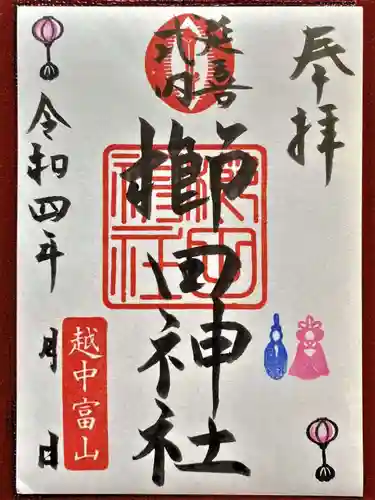 奉拝
延喜
式内
櫛田神社
令和四年 月 日
越中富山